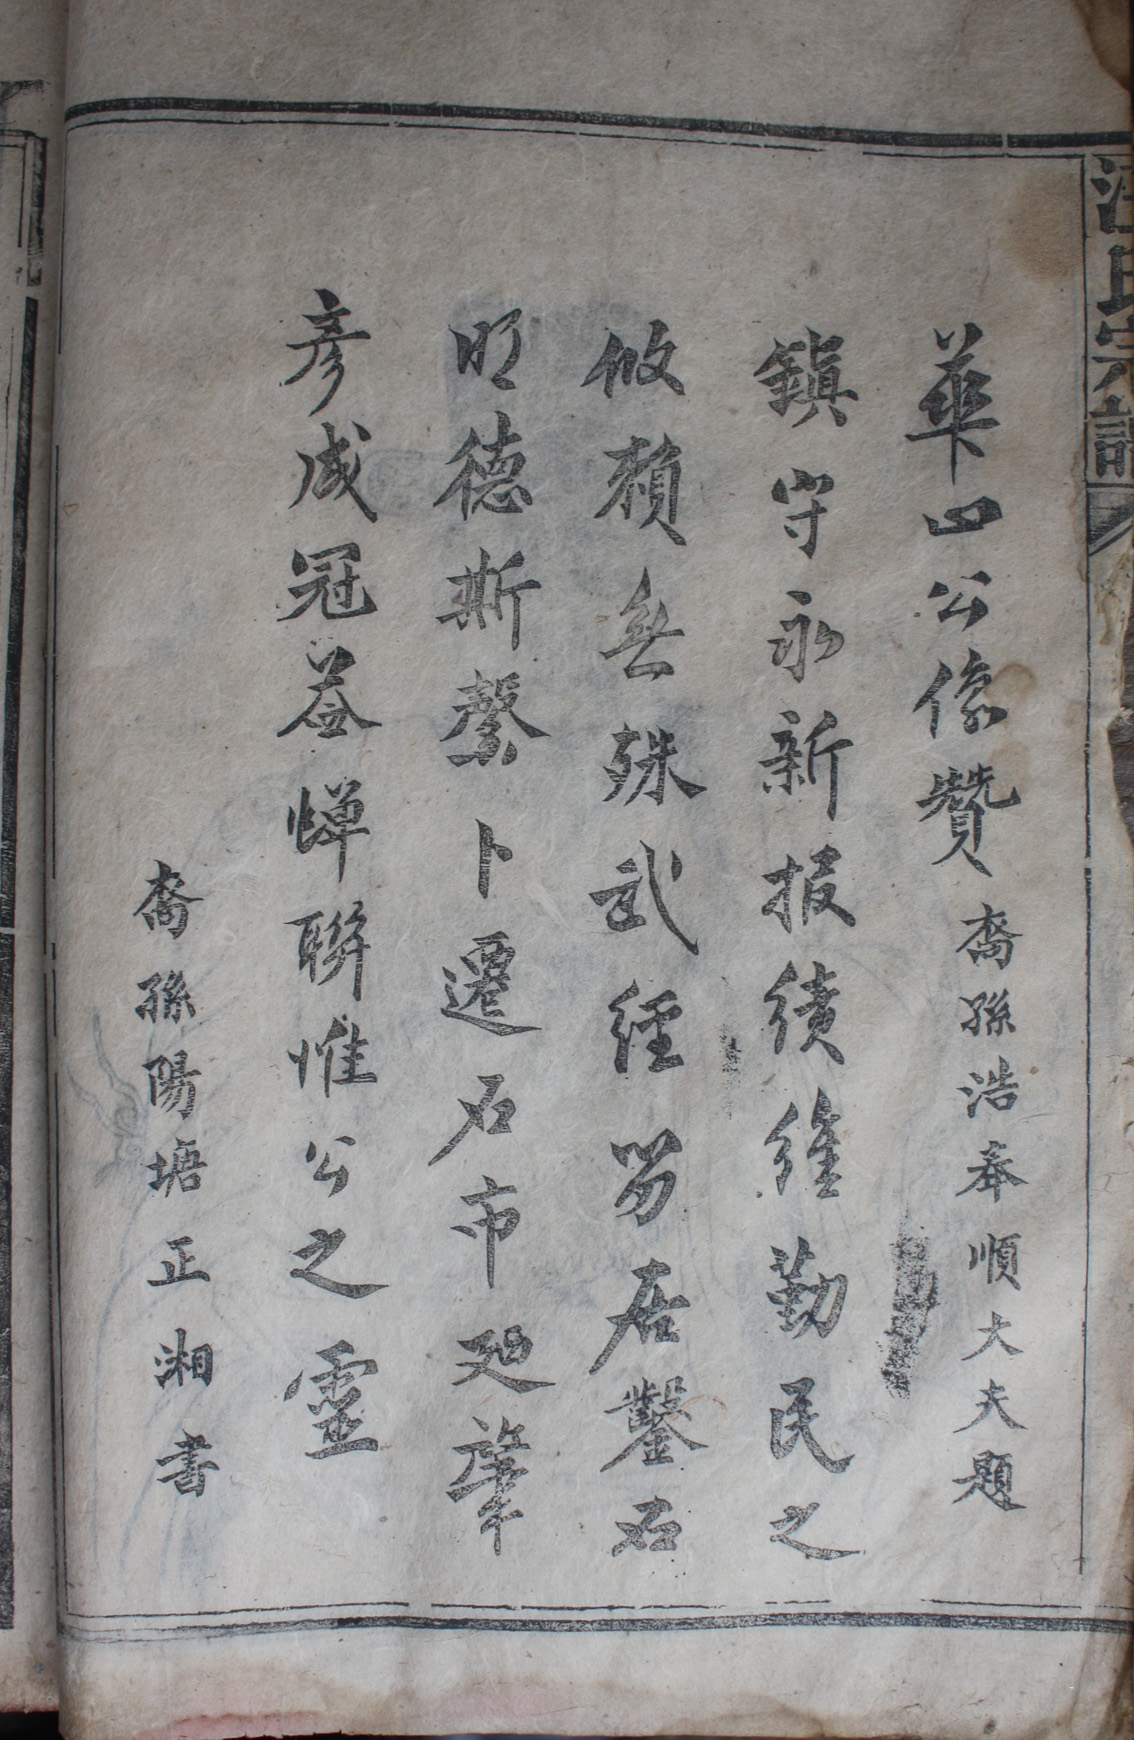 汪氏宗譜
華四公像贊 裔孫浩奉順大夫題
鎮守永新报績維勤民之
攸賴無殊武経営居鑿石
明德斯馨卜遷石市廼肇
彦成冠益蟬聯惟公之靈
裔孫陽塘正湘書